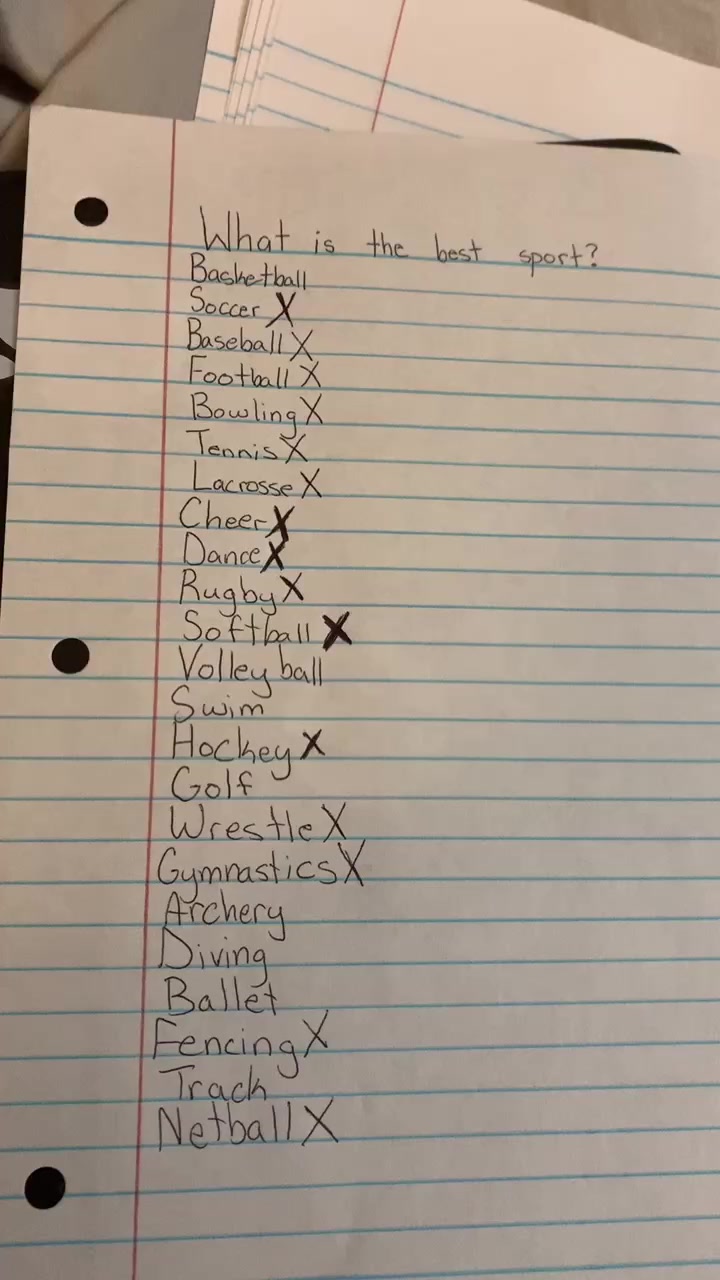 What is the best sport?
Basketball
Soccer X
Baseball X
Football X
Bowling X
Tennis X
Lacrosse X
Cheer X
Dance X
Rugby X
Softball X
Volleyball
Swim
Hockey X
Golf
Wrestle X
Gymnastics X
Archery
Diving
Ballet
Fencing X
Track
Netball X